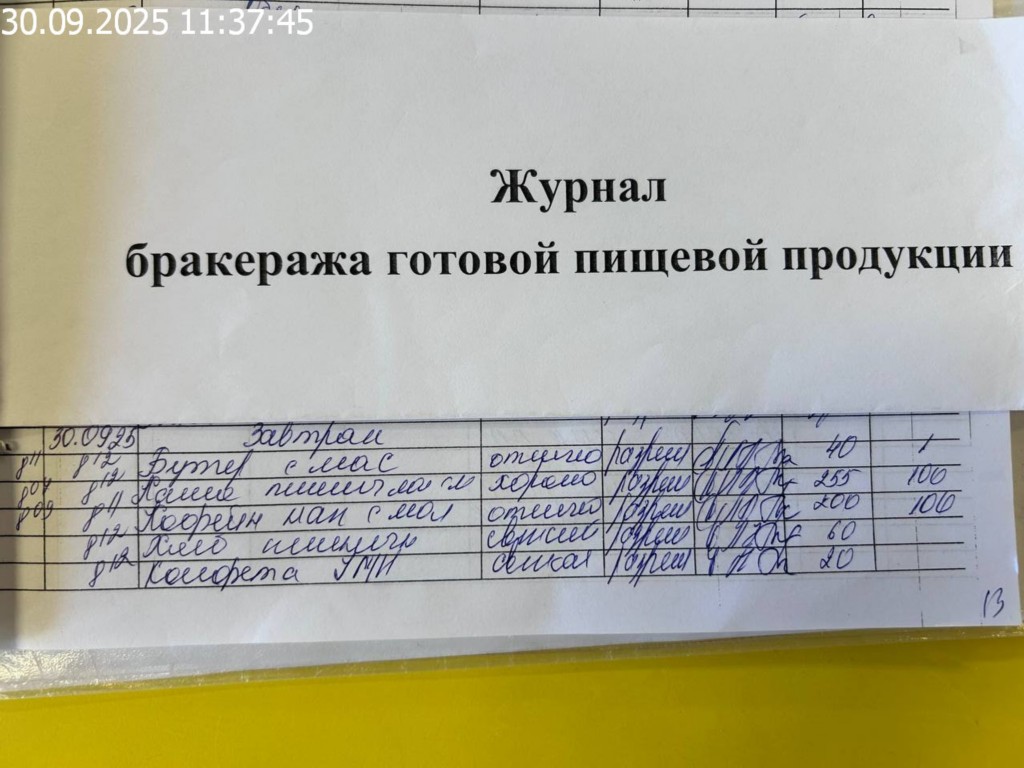 30.09.2025 11:37:45
Журнал
бракеража готовой пищевой продукции
30.0925 Завтрак
8¹¹ 8¹² Бутер с мас отлично разреш 40 1
8⁰⁷ 8¹² Каша хорошо разреш 255 100
8⁰⁹ 8¹¹ Кофейн нап с мол отлично разреш 200 100
8¹² Хлеб пшенич свежий разреш 60
8¹² Конфета УМН свежая разреш 20
13